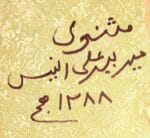 مثنوی
میر ببر علی انیس
۱۲۸۸ ھج